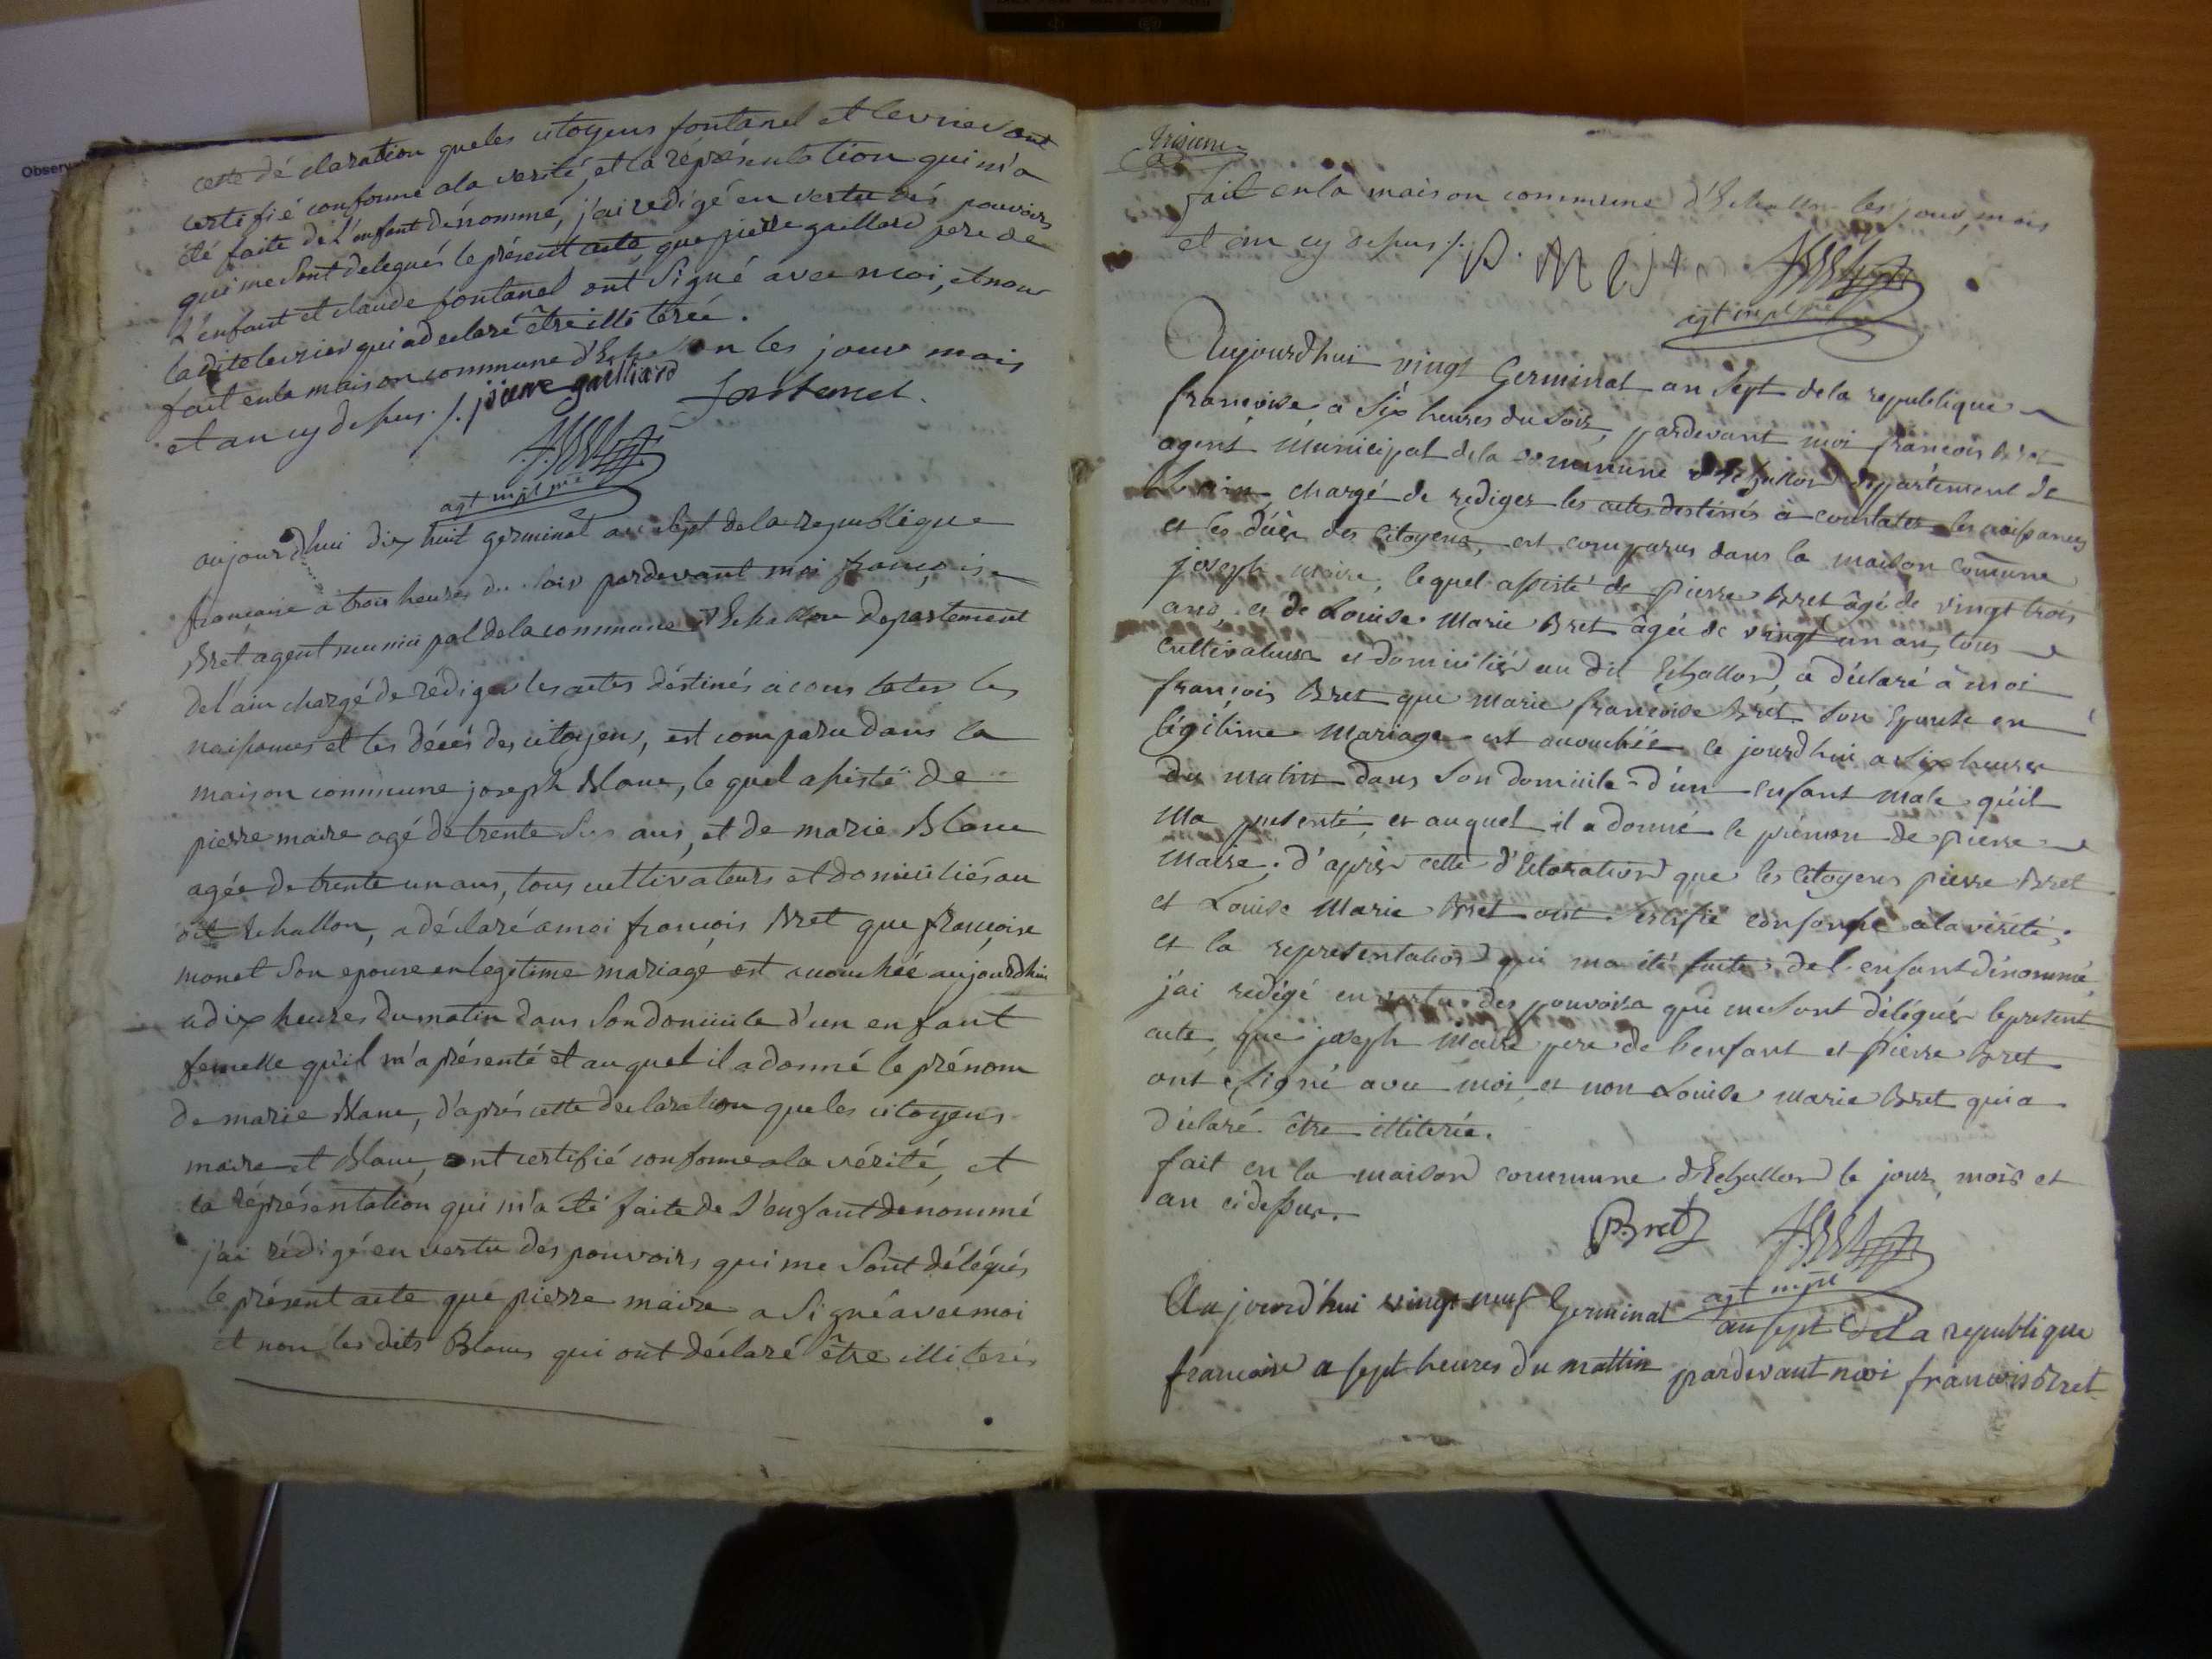 cette dé claration que les citoyens fontanel et levrier ont
certifié conforme ala verité, et la répésentation qui m'a
été faite de L'enfant dénommé, j'ai redigé en vertu dés pouvoirs
qui me sont delegués le présent acte, que pierre gaillard pere de
L'enfant et claude fontanel ont signé avec moi, et non
ladite levrier qui a declaré être illitérée.
fait en la maison commune d'Echallon les jour mois
et an cy dessus ./. piere gailliard fontanel.
agt mpl
aujourdhui dix huit germinal an sept de la republique
francaise à trois heures du soir pardevant moi françois
Bret agent municipal de la commune d'Echallon departement
del'ain chargé de rédiger les actes déstinés a cons tater les
naissances et les décés des citoyens, est comparu dans la
maison commune joseph Blanc, le quel assisté de
pierre maire agé de trente six ans, et de marie Blanc
agée de trente un ans, tous cultivateurs et domiciliés au
dit Echallon, a déclaré a moi françois Bret que françoise
monet son epouse en legitime mariage est acouchée aujourdhui
a dix heures du matin dans son domicile d'un enfant
femelle qu'il m'a présenté et auquel il a donné le prénom
de marie Blanc, d'aprés cette declaration que les citoyens
maire et Blanc, ont certifié conforme a la vérité, et
la réprésentation qui m'a été faite de L'enfant denommé
j'ai rédigé en vertu des pouvoirs qui me sont délégués
le présent acte que pierre maire a signé avec moi
et non les dits Blancs qui ont déclaré être illiterés
fait en la maison commune d'Echallon les jour, mois
et an cy dessus ./.
agt mpl
Aujourdhui vingt Germinal an sept de la republique
francoise a six heures du soir, pardevant moi francois Bret
agent Municipal de la commune d'Echallon département de
L'ain chargé de rediger les actes destinés a constater les naissances
et les décès des Citoyens, est comparus dans la maison commune
joseph maire, lequel assisté de pierre Bret âgé de vingt trois
ans, et de Louise Marie Bret âgée de vingt un ans, tous
Cultivateurs et domiciliés au dit Echallon, a déclaré à moi
françois Bret que marie francoise Bret son Epouse en
légitime Mariage est acouchée ce jourdhui a six heures
du matin dans son domicile d'un enfant male qu'il
ma présenté, et auquel il a donné le prénom de pierre
Maire. d'après cette d'Eclaration que les Citoyens pierre Bret
et Louise Marie Bret ont certifié conforme à la vérité;
et la representation qui ma été faite, de l'enfant dénommé,
j'ai redigé en vertu des pouvoirs qui me sont délégués le present
acte, que joseph Maire pere de l'enfant et pierre Bret
ont signé avec moi, et non Louise Marie Bret qui a
déclaré être illiterée.
fait en la maison commune d'Echallon le jour, mois et
an cidessus.
P. Bret
agt mpl
Au jourd'hui vingt neuf Germinal an sept de la republique
francaise a sept heures du mattin pardevant moi francois Bret